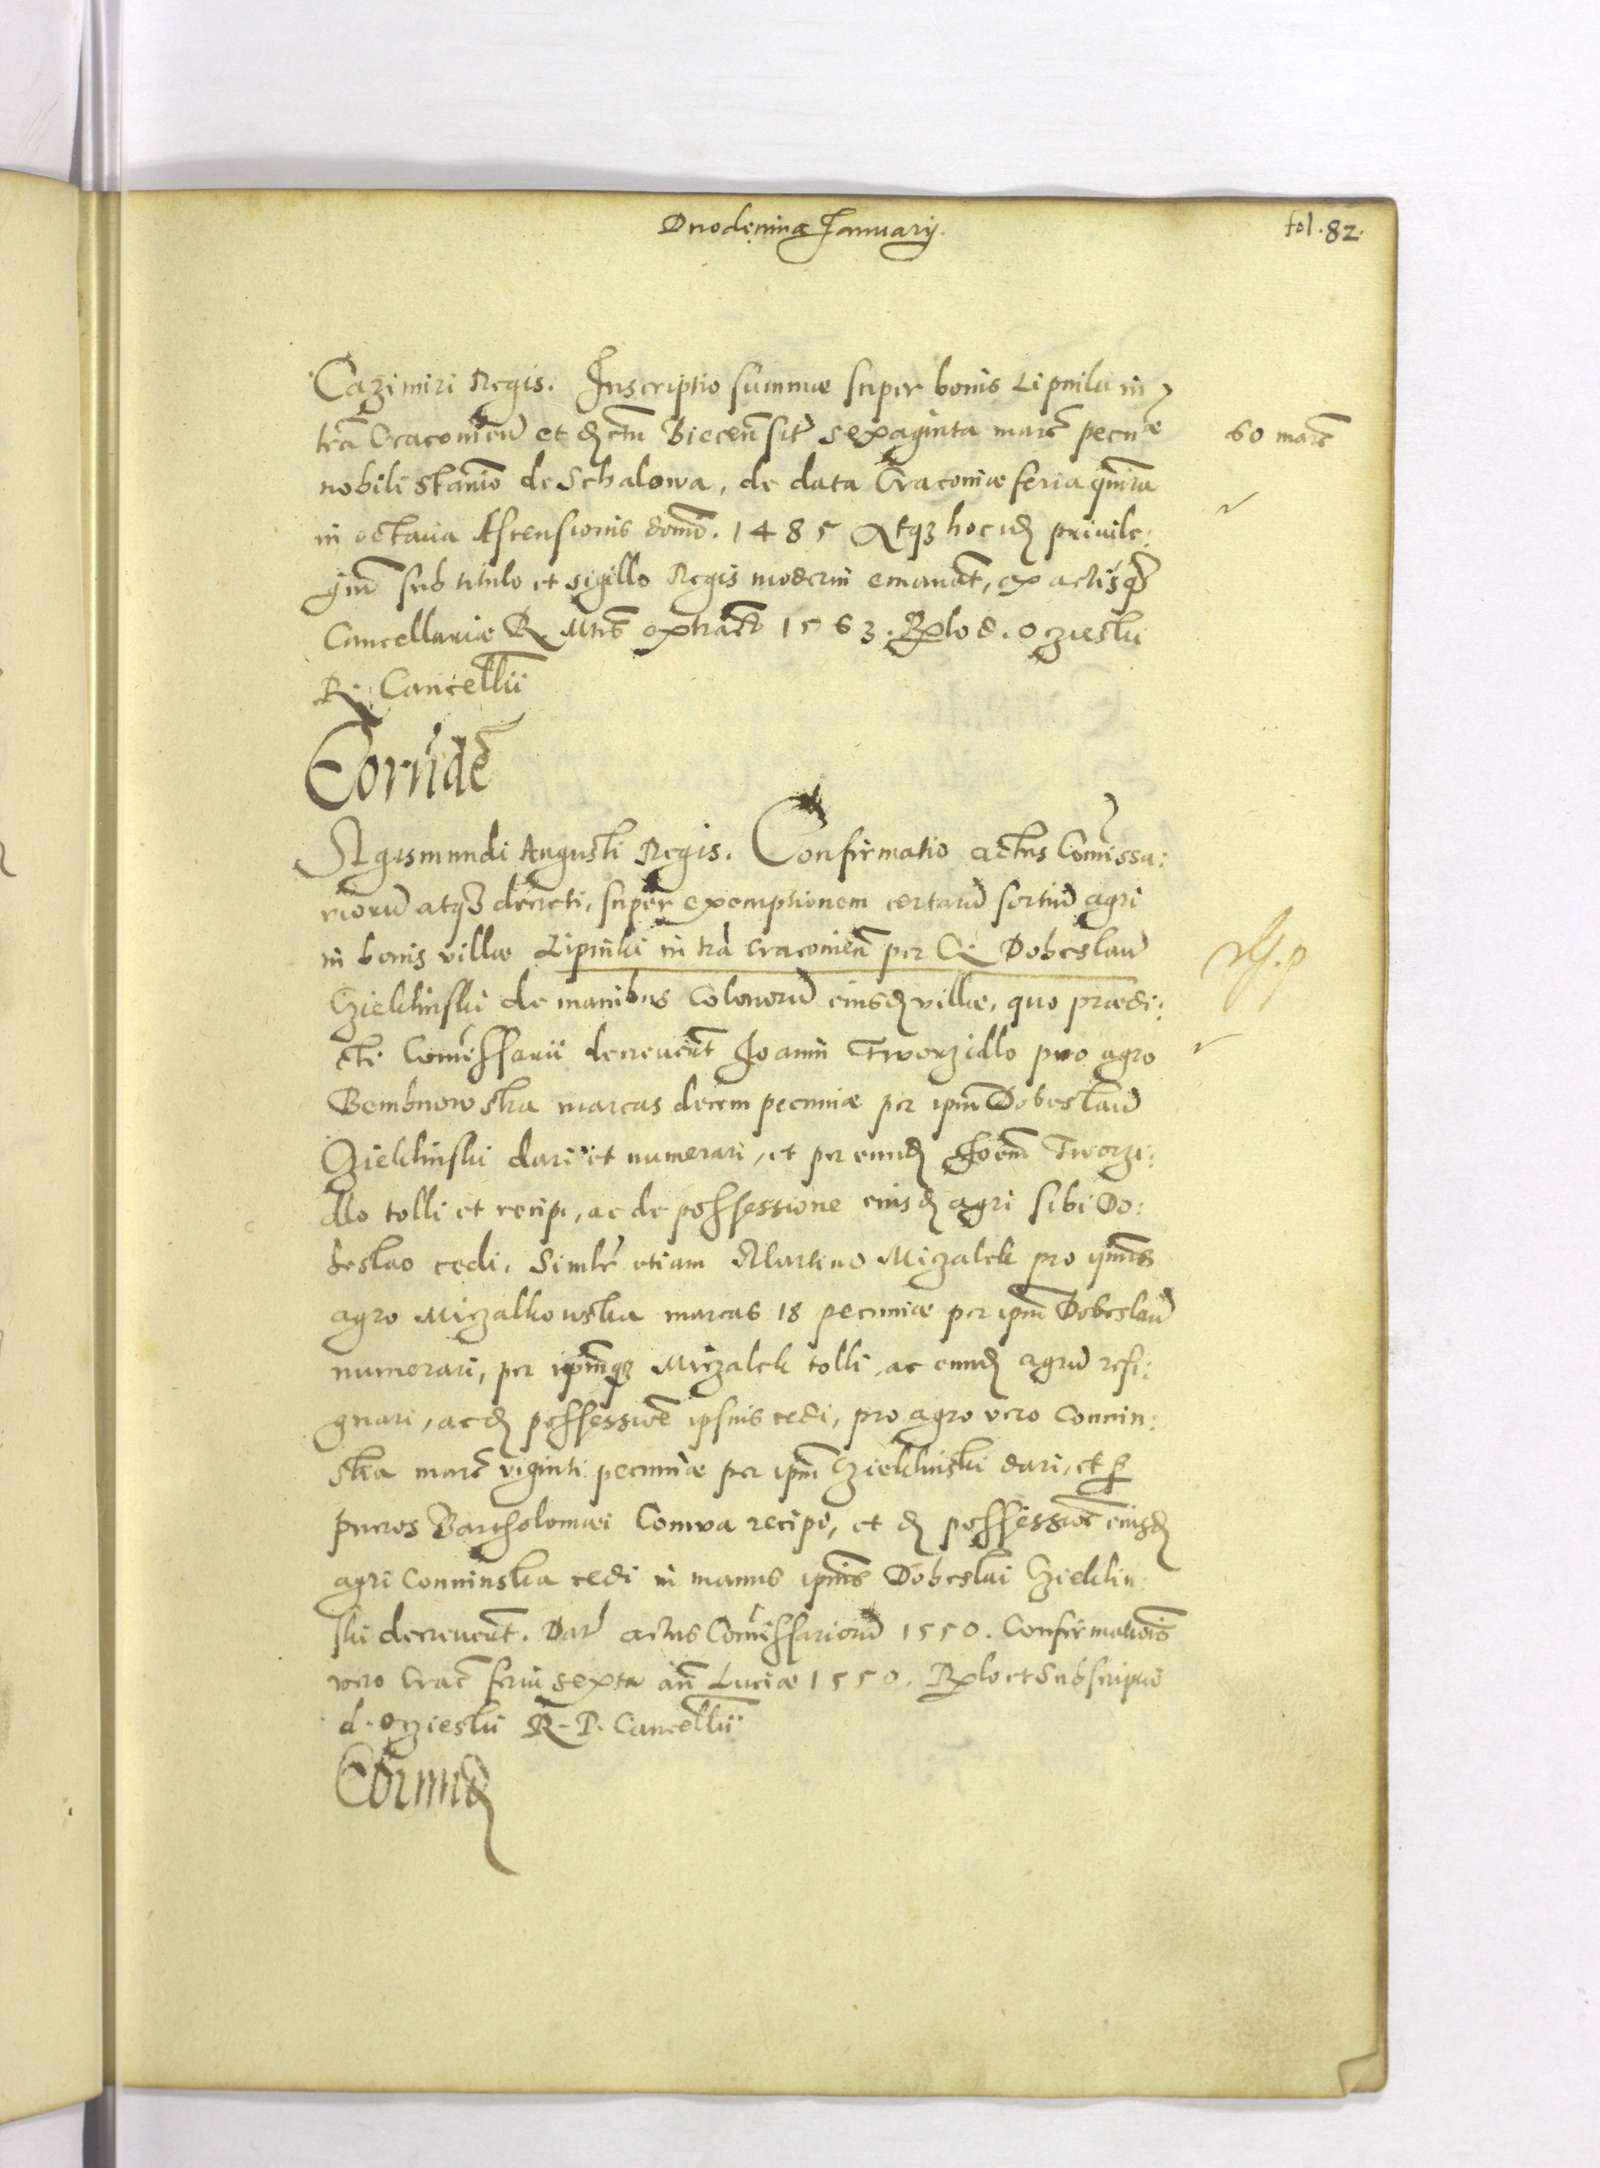 Duodenina January.
fol. 82.
Cazimiri Regis. Inscriptio summae super bonis Lipniki in
tra Cracovien et dictu Biecen sit sexaginta marc pecunae
60 marc
nobili Stanio de Schalowa, de data Cracoviae feria quinta
in octava Ascensionis domi. 1485 Atq hoc id privile:
gium sub titulo et sigillo Regis moderni emanat, ex actisq
Cancellariae R. Mtis extract 1563. Rxlo d. Oczieski
R. Cancellii
Eorunde
Sigismundi Augusti Regis. Confirmatio actus Comissa:
riorum atq decreti, super exemptionem certarum sortium agri
in bonis villae Lipniki in tra Cracovien per G. Dobeslaum
Czieklinski de manibus Colonorum eiusd villae, quo praedi:
cti Comissarii decreverut Joanni Tworzidlo pro agro
Bembnowska marcas decem pecuniae per ipm Dobeslaum
Czieklinski dari et numerari, et per eund Joem Tworzi:
dlo tolli et recipi, ac de possessione eiusd agri sibi Do:
beslao cedi. Simlr etiam Martino Miczalek pro ipsius
agro Miczalkowska marcas 18 pecuniae per ipm Dobeslaum
numerari, per ipsumq Miczalek tolli ac eund agrum resi:
gnari, ac d possessioe ipsius cedi, pro agro vero Connin:
ska marc viginti pecuniae per ipm Czieklinski dari, et p
pueros Bartholomaei Conwa recipi, et d possessioe eiusd
agri Conninska cedi in manus ipsius Dobeslai Czieklin:
ski decreverut. Dat actus Comissariorum 1550. Confirmatiois
vero Crac feria sexta an Luciae 1550. Rxlo et Subscriptio
d. Oczieski R. P. Cancellii
Eorund